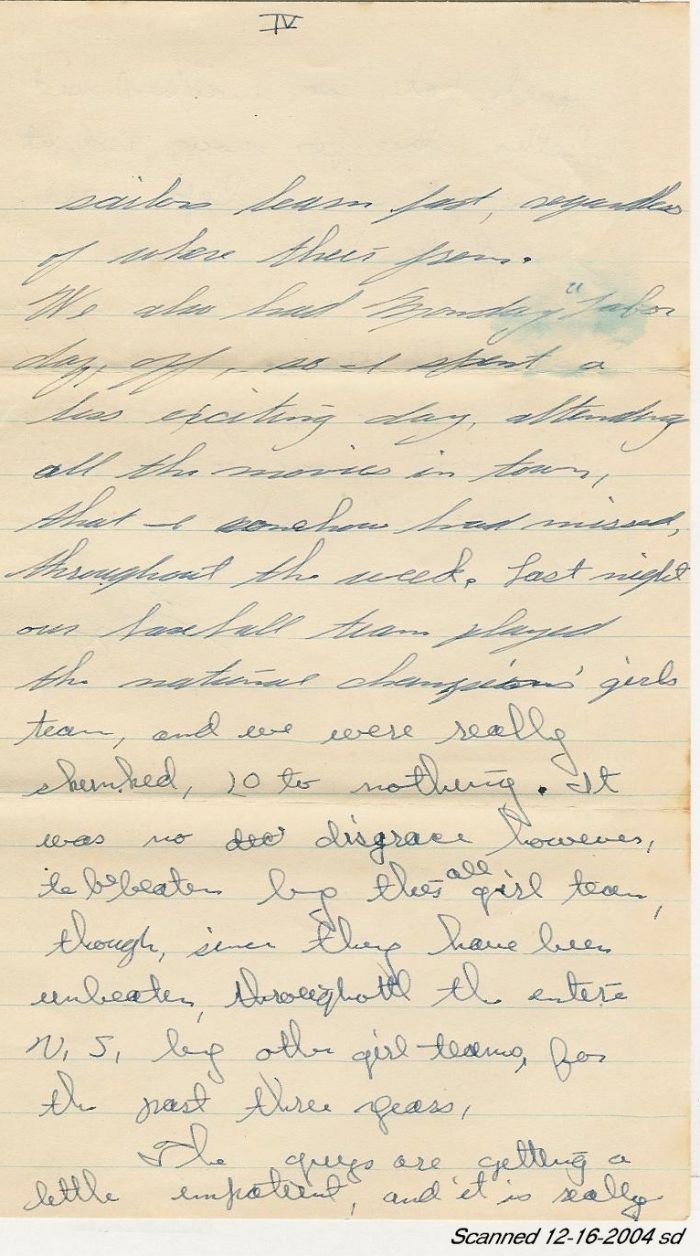 IV
sailors learn fast, regardless
of where their from.
We also had Monday "Labor
day, off, so I spent a
less exciting day, attending
all the movies in town,
that I somehow had missed,
throughout the week. Last night
our baseball team played
the national champions' girls
team, and we were really
skunked, 20 to nothing. It
was no disgrace however,
to be beaten by this all girl team,
though, since they have been
unbeaten, throughout the entire
U.S, by other girl teams, for
the past three years,
The guys are getting a
little impatient, and it is really
Scanned 12-16-2004 sd